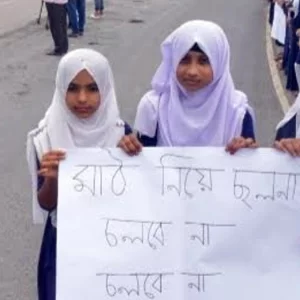 মাঠ নিয়ে ছলনা
চলবে না
চলবে না